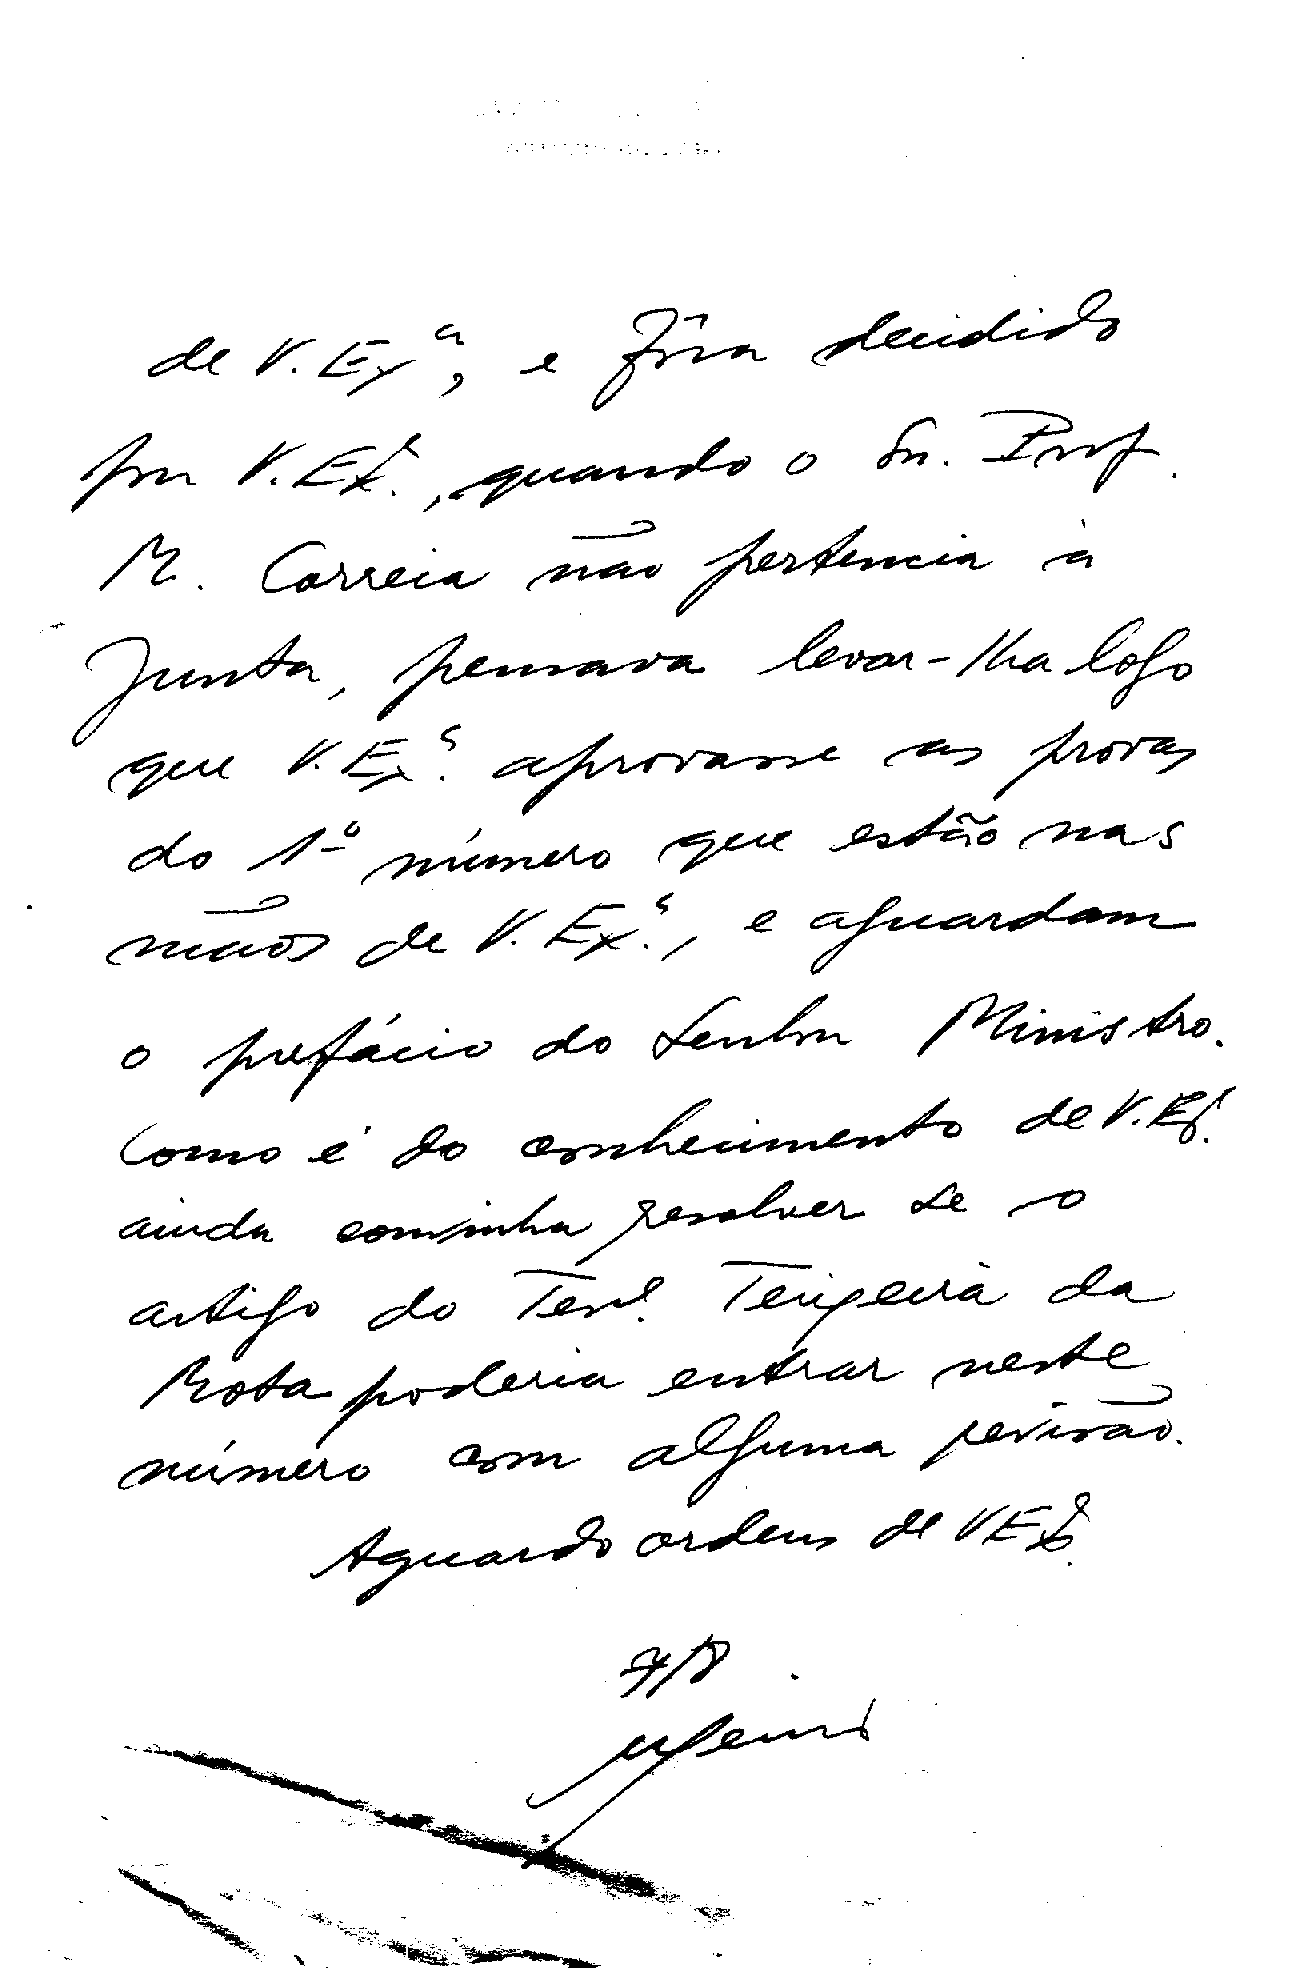 de V. Exª, e fôra decidido
por V. Exª., quando o Sr. Prof.
M. Correia não pertencia à
Junta, pensava levar-lha logo
que V. Exª. aprovasse as provas
do 1º número que estão nas
mãos de V. Exª., e aguardam
o prefácio do Senhor Ministro.
Como é do conhecimento de V. Exª.
ainda convinha resolver se o
artigo do Tene. Teixeira da
Mota poderia entrar neste
número com alguma revisão.
Aguardo ordens de V Exª.